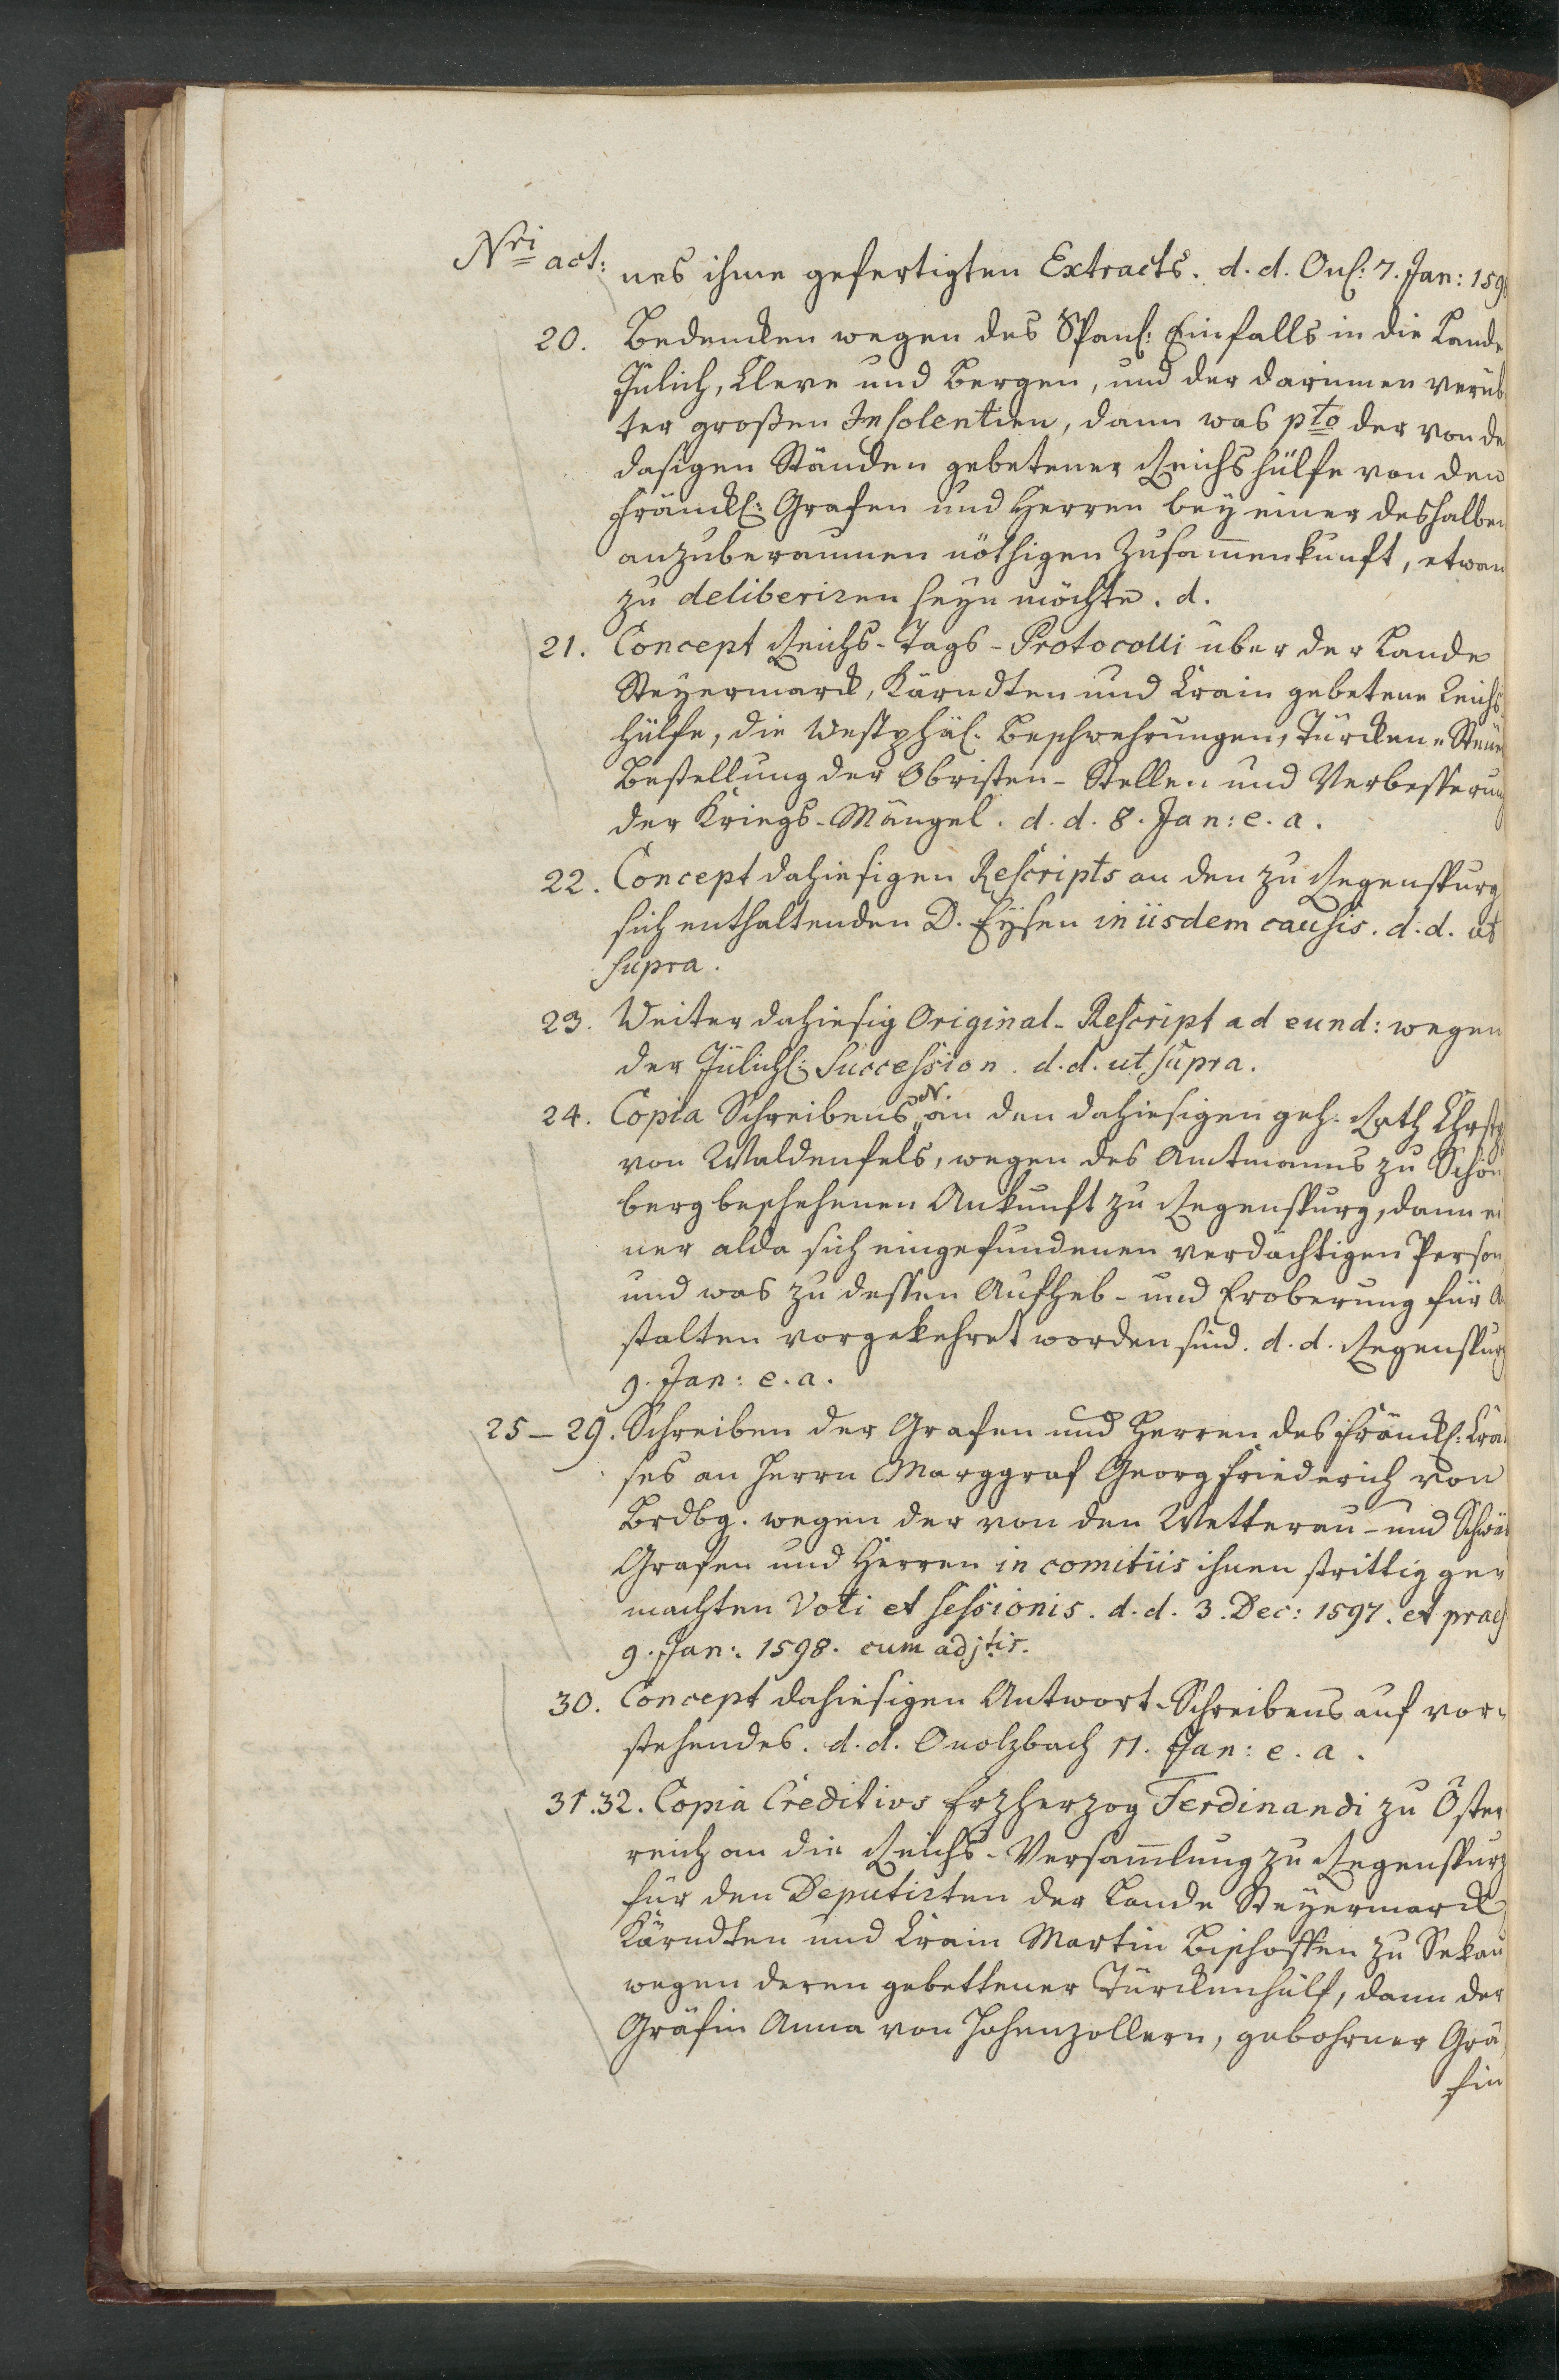 Nri act: nes ihme gefertigten Extracts. d. d. Onl: 7. Jan: 159
20. Bedencken wegen des Span: Einfalls in die Lande
Jülich, Cleve und Bergen, und der darinnen verüb
ter großen Insolentien, dann was pto der von de
dasigen Ständen gebetener Reichshülfe von den
Fränckl: Grafen und Herren bey einer deshalben
anzuberaumen nöthigen Zusam̄enkunft, etwan
zu deliberiren seyn möchte. d.
21. Concept Reichs-Tags-Protocolli über der Lande
Steyermarck, Kärndten und Crain gebetene Reichs
hülfe, die Westphäl. Beschwehrungen, Türcken-Steue
Bestellung der Obristen-Stellen und Verbesserung
der Kriegs-Mängel. d. d. 8. Jan: e. a.
22. Concept dahiesigen Rescripts an den zu Regenspurg
sich enthaltenden D. Eysen in iisdem causis. d. d. ut
supra.
23. Weiter dahiesig Original-Rescript ad eund: wegen
der Jülichl: Succession. d. d. ut supra.
24. Copia Schreibens N. an den dahiesigen geh. Rath Chrstph
von Waldenfels, wegen des Amtmanns zu Schön
berg beschehenen Ankunft zu Regenspurg, dann ei
ner alda sich eingefundenen verdächtigen Person,
und was zu dessen Aufheb- und Eroberung für A
stalten vorgekehret worden sind. d. d. Regenspurg
9. Jan: e. a.
25–29. Schreiben der Grafen und Herren des Fränckl: Crai
ses an Herrn Marggraf Georg Friederich von
Brdbg. wegen der von den Wetterau- und Schwäb
Grafen und Herren in comitiis ihnen strittig ge-
machten Voti et sessionis. d. d. 3. Dec: 1597. et praes
9. Jan: 1598. cum adjtis.
30. Concept dahiesigen Antwort-Schreibens auf vor-
stehendes. d. d. Onolzbach 11. Jan: e. a.
31.32. Copia Creditivs Erzherzog Ferdinandi zu Öster
reich an die Reichs-Versam̄lung zu Regenspurg
für den Deputirten der Lande Steyermarck,
Kärndten und Crain Martin Bischoffen zu Sekau
wegen deren gebettener Türckenhülf, dann der
Gräfin Anna von Hohenzollern, gebohrner Grä-
fin